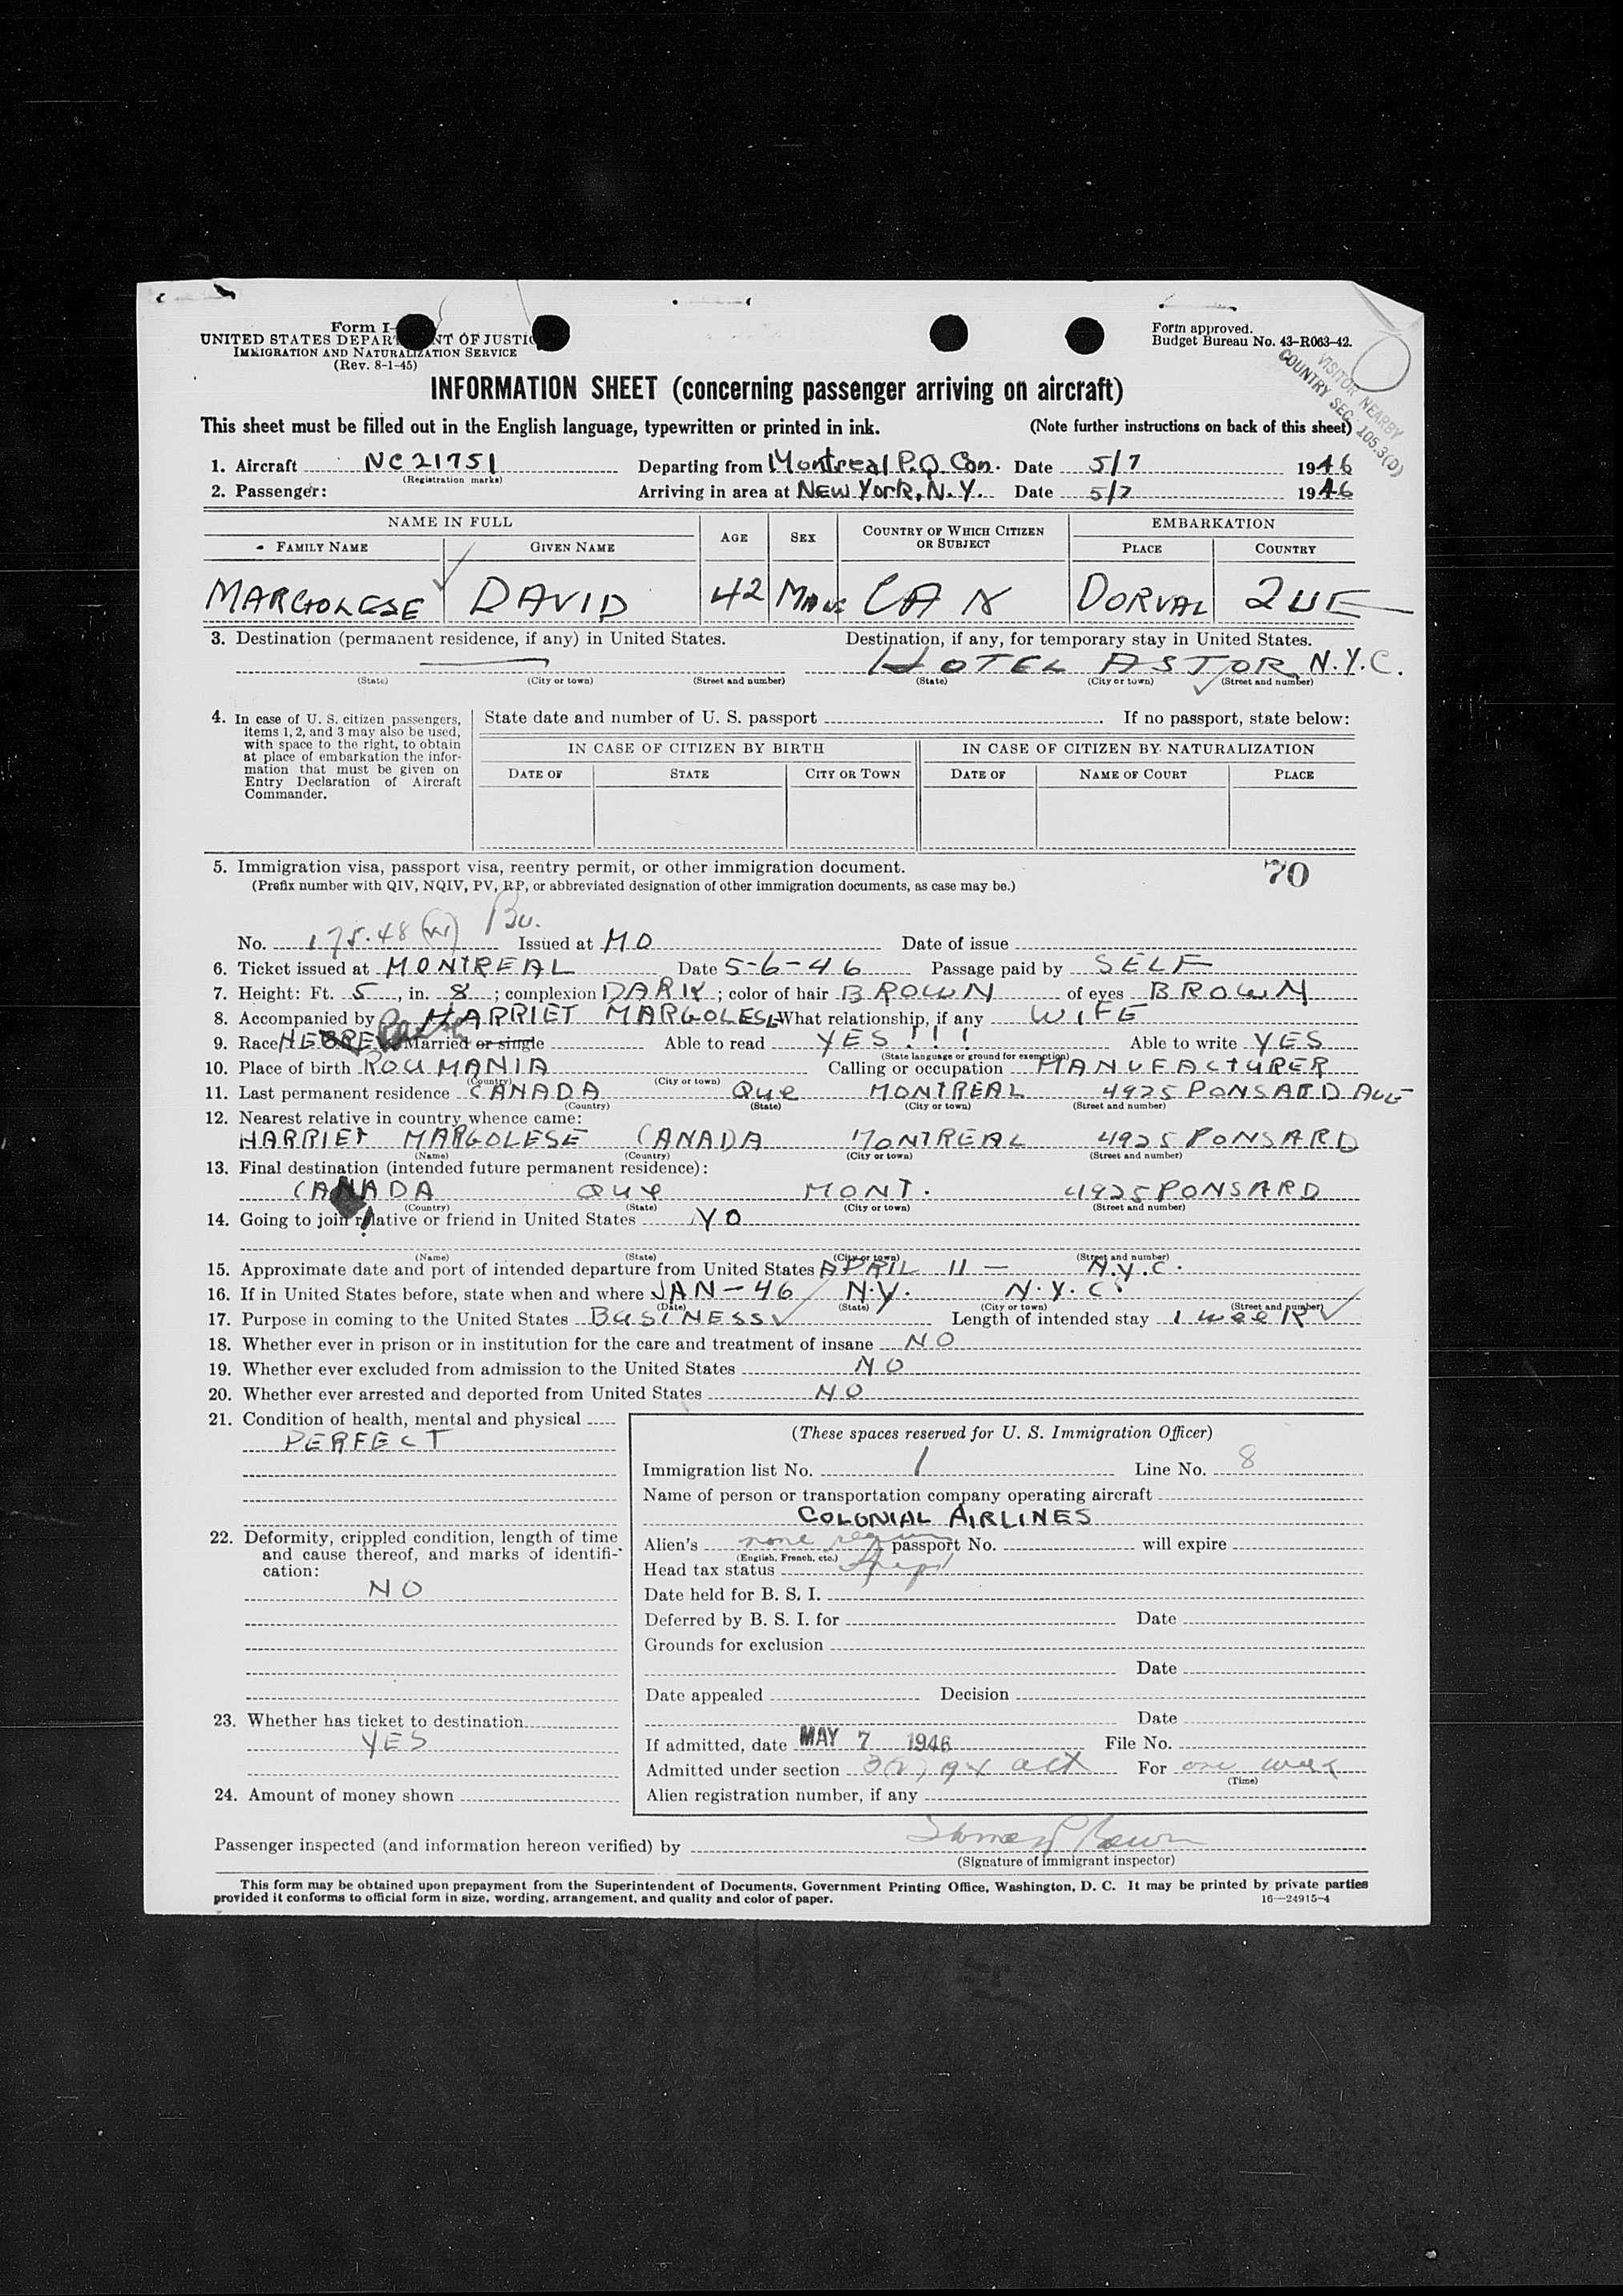 Form I-
UNITED STATES DEPAR NT OF JUSTIC
IMMIGRATION AND NATURALIZATION SERVICE
(Rev. 8-1-45)
Form approved.
Budget Bureau No. 43-R063-42.
VISITOR NEARBY
COUNTRY SEC. 105.3(D)
INFORMATION SHEET (concerning passenger arriving on aircraft)
This sheet must be filled out in the English language, typewritten or printed in ink. (Note further instructions on back of this sheet)
1. Aircraft NC21751 Departing from Montreal P.Q. Can. Date 5/7 1946
(Registration marks)
2. Passenger: Arriving in area at NEW York, N.Y. Date 5/7 1946
NAME IN FULL AGE SEX COUNTRY OF WHICH CITIZEN OR SUBJECT EMBARKATION
FAMILY NAME GIVEN NAME PLACE COUNTRY
MARGOLESE DAVID 42 MALE CAN DORVAL QUE
3. Destination (permanent residence, if any) in United States. Destination, if any, for temporary stay in United States.
HOTEL ASTOR N.Y.C.
(State) (City or town) (Street and number) (State) (City or town) (Street and number)
4. In case of U. S. citizen passengers, items 1, 2, and 3 may also be used, with space to the right, to obtain at place of embarkation the information that must be given on Entry Declaration of Aircraft Commander.
State date and number of U. S. passport . If no passport, state below:
IN CASE OF CITIZEN BY BIRTH IN CASE OF CITIZEN BY NATURALIZATION
DATE OF STATE CITY OR TOWN DATE OF NAME OF COURT PLACE
5. Immigration visa, passport visa, reentry permit, or other immigration document. 70
(Prefix number with QIV, NQIV, PV, RP, or abbreviated designation of other immigration documents, as case may be.)
No. 175.48 Issued at MO Date of issue
6. Ticket issued at MONTREAL Date 5-6-46 Passage paid by SELF
7. Height: Ft. 5, in. 8; complexion DARK; color of hair BROWN of eyes BROWN
8. Accompanied by HARRIET MARGOLESE What relationship, if any WIFE
9. Race HEBREW Married or single Able to read YES!!! Able to write YES
(State language or ground for exemption)
10. Place of birth ROUMANIA Calling or occupation MANUFACTURER
(Country) (City or town)
11. Last permanent residence CANADA Que MONTREAL 4925 PONSARD AVE
(Country) (State) (City or town) (Street and number)
12. Nearest relative in country whence came:
HARRIET MARGOLESE CANADA MONTREAL 4925 PONSARD
(Name) (Country) (City or town) (Street and number)
13. Final destination (intended future permanent residence):
CANADA Que MONT. 4925 PONSARD
(Country) (State) (City or town) (Street and number)
14. Going to join relative or friend in United States NO
(Name) (State) (City or town) (Street and number)
15. Approximate date and port of intended departure from United States APRIL 11 — N.Y.C.
16. If in United States before, state when and where JAN-46 N.Y. N.Y.C.
(Date) (State) (City or town) (Street and number)
17. Purpose in coming to the United States BUSINESS Length of intended stay 1 week
18. Whether ever in prison or in institution for the care and treatment of insane NO
19. Whether ever excluded from admission to the United States NO
20. Whether ever arrested and deported from United States NO
21. Condition of health, mental and physical
PERFECT
22. Deformity, crippled condition, length of time and cause thereof, and marks of identification:
NO
23. Whether has ticket to destination
YES
24. Amount of money shown
(These spaces reserved for U. S. Immigration Officer)
Immigration list No. 1 Line No. 8
Name of person or transportation company operating aircraft
COLONIAL AIRLINES
Alien's none passport No. will expire
(English, French, etc.)
Head tax status
Date held for B. S. I.
Deferred by B. S. I. for Date
Grounds for exclusion
Date
Date appealed Decision
Date
If admitted, date MAY 7 1946 File No.
Admitted under section 3(2) act For one week
(Time)
Alien registration number, if any
Passenger inspected (and information hereon verified) by
(Signature of immigrant inspector)
This form may be obtained upon prepayment from the Superintendent of Documents, Government Printing Office, Washington, D. C. It may be printed by private parties
provided it conforms to official form in size, wording, arrangement, and quality and color of paper. 16—24915-4